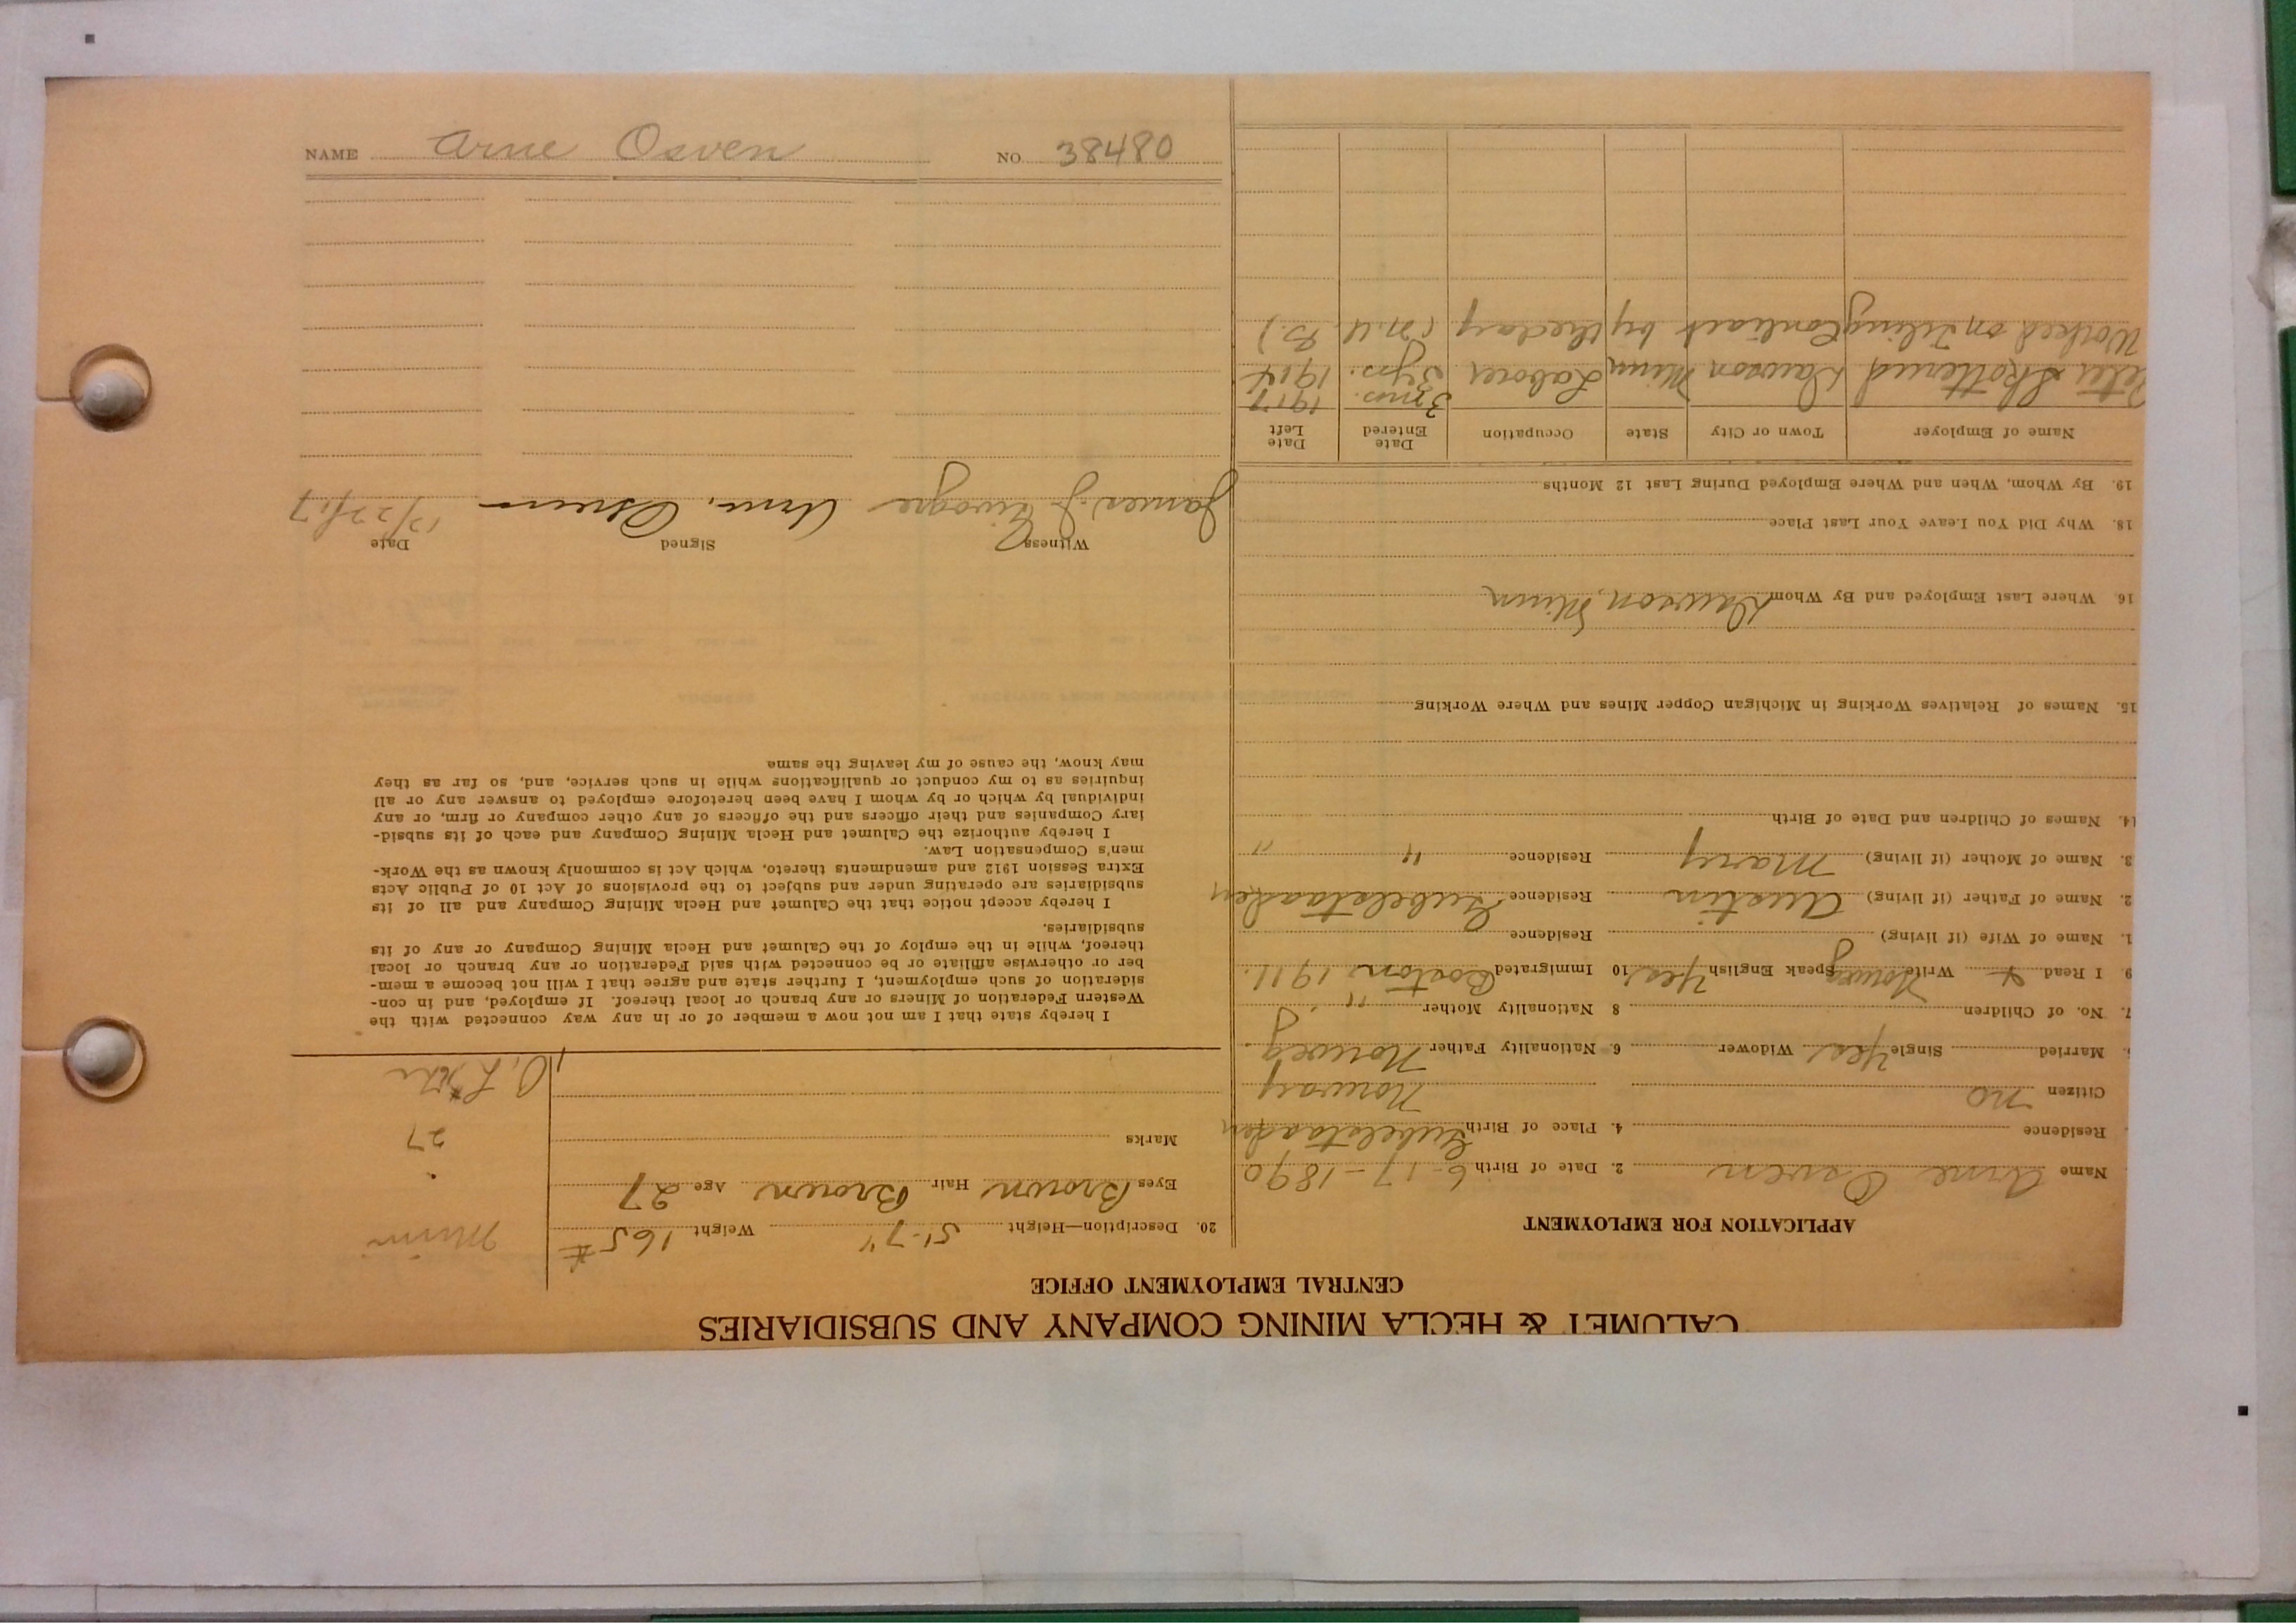 NAME Arne Osven NO. 38480
CALUMET & HECLA MINING COMPANY AND SUBSIDIARIES
CENTRAL EMPLOYMENT OFFICE
APPLICATION FOR EMPLOYMENT
Name Arne Osven 2. Date of Birth 6-17-1890
Residence 4. Place of Birth
Citizen no Norway
Married Single Yes Widower 6. Nationality Father Norweg
7. No. of Children 8 Nationality Mother "
9 I Read & Write Norweg Speak English Yes 10 Immigrated Boston 1911.
1. Name of Wife (if living) Residence
2. Name of Father (if living) Austin Residence
3. Name of Mother (if living) Mary Residence " "
14. Names of Children and Date of Birth
15. Names of Relatives Working in Michigan Copper Mines and Where Working
16. Where Last Employed and By Whom Dawson, Minn
18. Why Did You Leave Your Last Place
19. By Whom, When and Where Employed During Last 12 Months
Name of Employer Town or City State Occupation Date Entered Date Left
3 mos. 1917
Peter Dawson Minn Laborer 3 yrs. 1914
Worked on Tiling Contract by the day (N.U.B.)
20. Description—Height 5'-7" Weight 165#
Eyes Brown Hair Brown Age 27
Marks
Minn
27
I hereby state that I am not now a member of or in any way connected with the
Western Federation of Miners or any branch or local thereof. If employed, and in con-
sideration of such employment, I further state and agree that I will not become a mem-
ber or otherwise affiliate or be connected with said Federation or any branch or local
thereof, while in the employ of the Calumet and Hecla Mining Company or any of its
subsidiaries.
I hereby accept notice that the Calumet and Hecla Mining Company and all of its
subsidiaries are operating under and subject to the provisions of Act 10 of Public Acts
Extra Session 1912 and amendments thereto, which Act is commonly known as the Work-
men's Compensation Law.
I hereby authorize the Calumet and Hecla Mining Company and each of its subsid-
iary Companies and their officers and the officers of any other company or firm, or any
individual by which or by whom I have been heretofore employed to answer any or all
inquiries as to my conduct or qualifications while in such service, and, so far as they
may know, the cause of my leaving the same
Witness Signed Date
James J. Arne. Osven 12/27/17